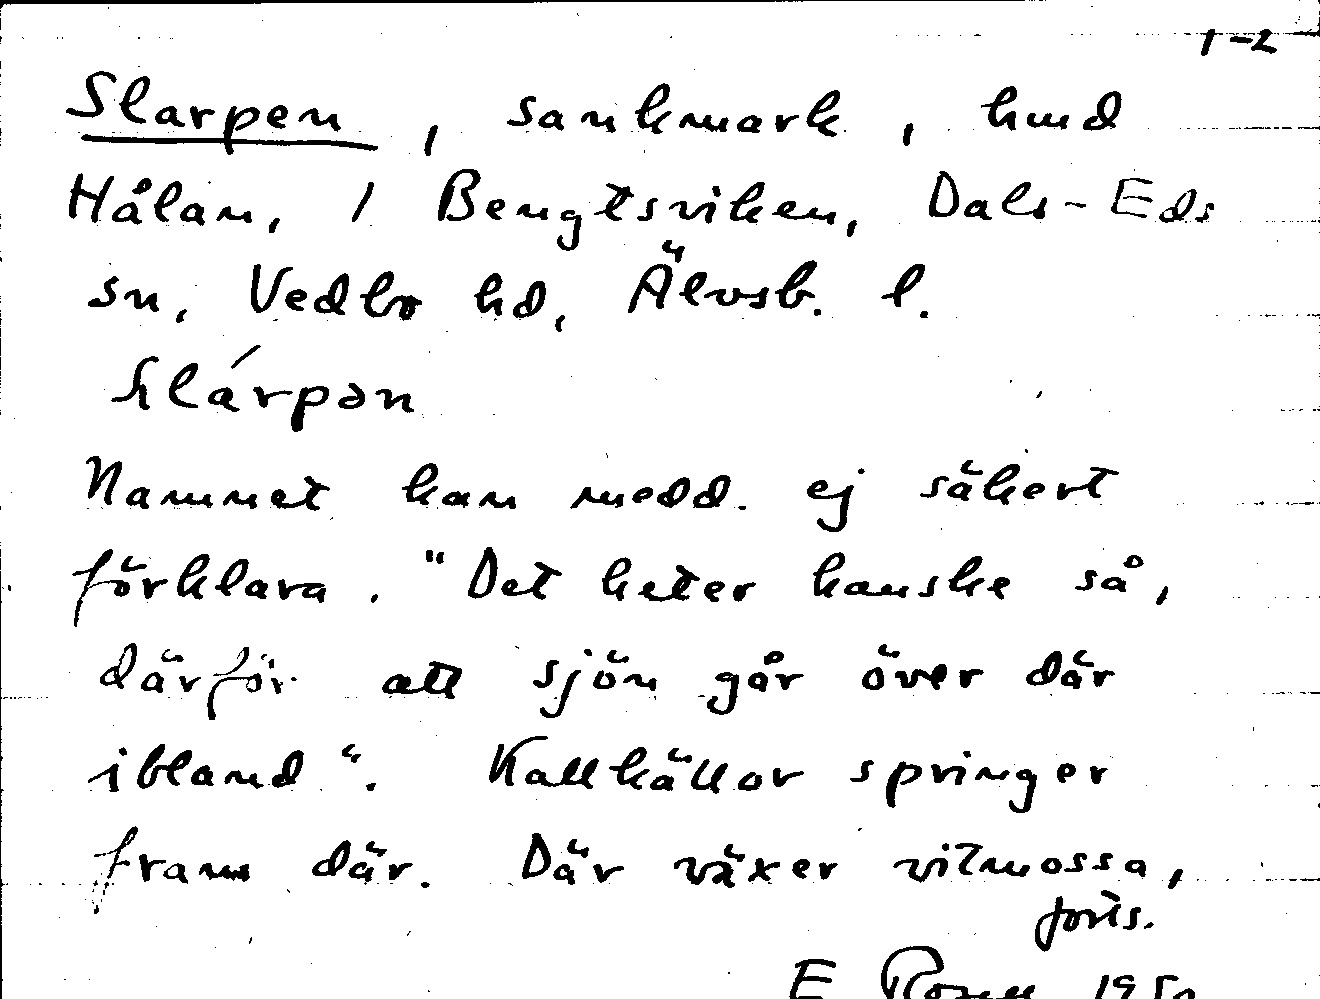 1-2
Slarpen, sankmark, hmd
Hålan, 1 Bengtsviken, Dals-Eds
sn, Vedbo hd, Älvsb. l.
slárpən
Namnet kan medd. ej säkert
förklara. "Det heter kanske så,
därför att sjön går över där
ibland". Kallkällor springer
fram där. Där växer vitmossa,
forts.
E